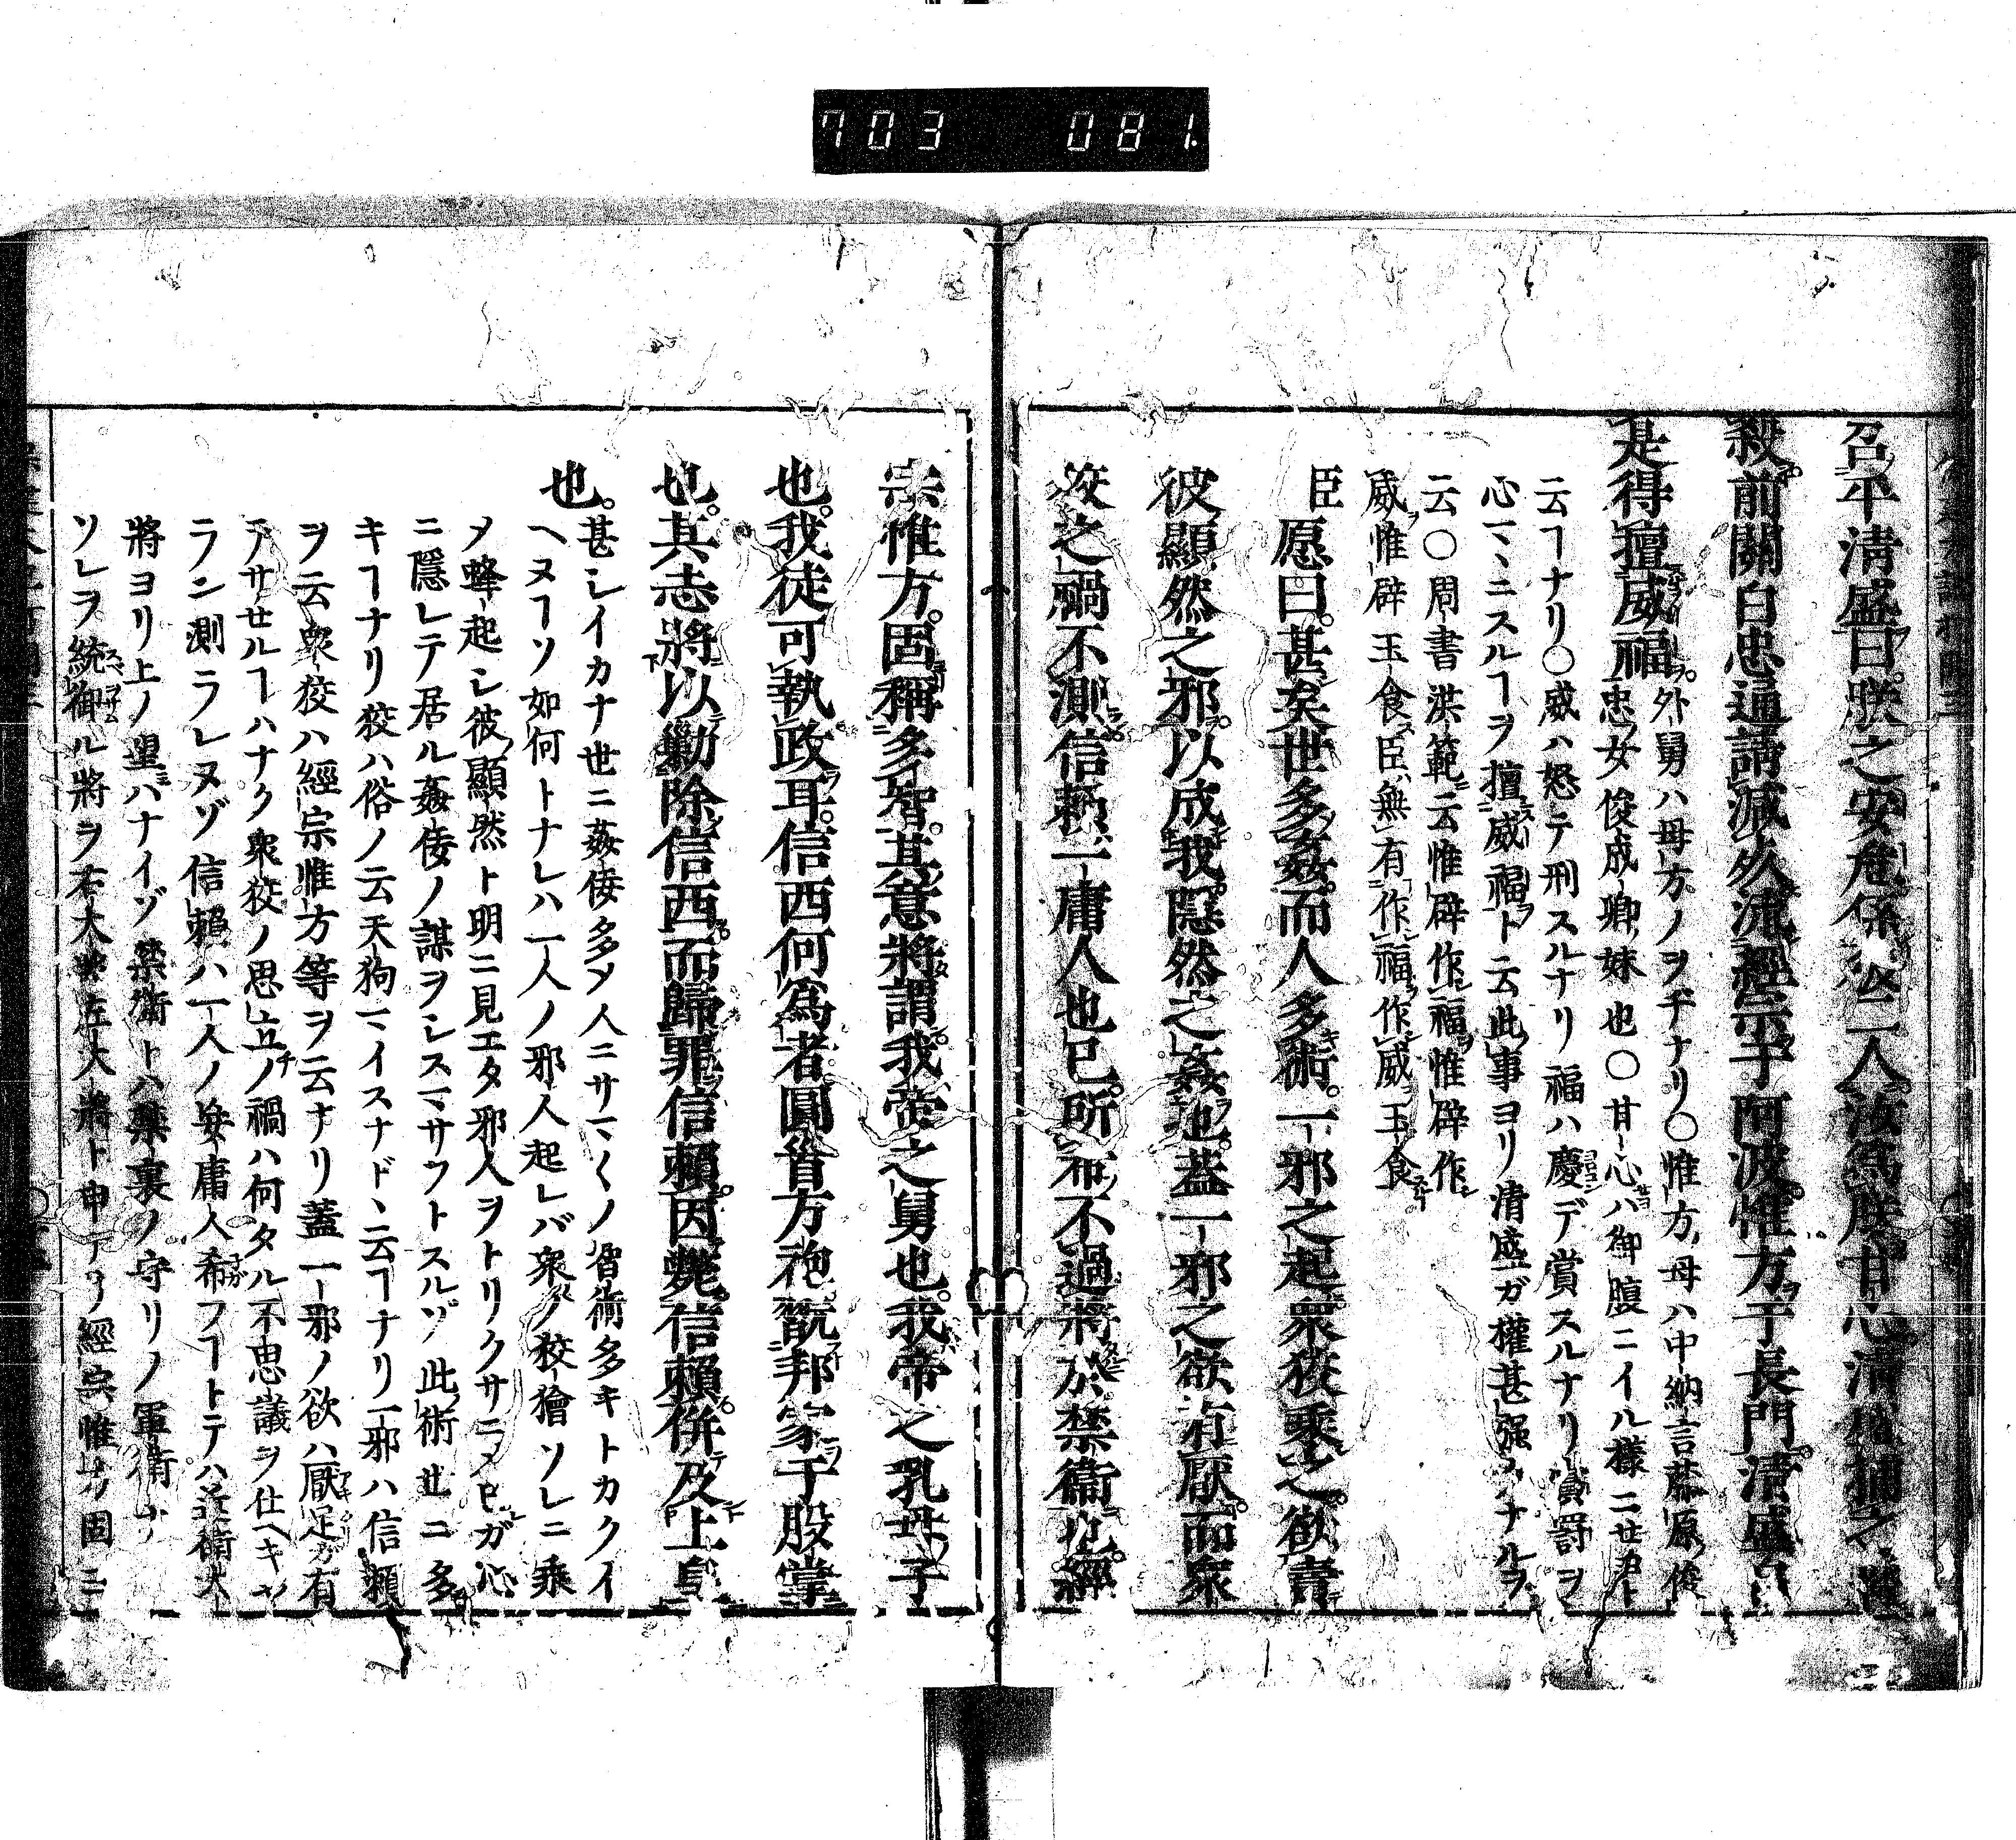 703 081
召平清盛曰朕之安危係此二人汝爲朕甘心清盛捕之遂
殺前關白忠通請減久流經宗于阿波惟方于長門清盛
是得擅威福
外舅ハ母方ノヲヂナリ○惟方母ハ中納言藤原俊
忠女俊成卿妹也○甘心ハ御腹ニイル樣ニセヨト
云ヿナリ○威ハ怒テ刑スルナリ福ハ慶デ賞スルナリ賞罰ヲ
心マヽニスルヿヲ擅威福ト云此事ヨリ清盛ガ權甚强クナルヲ
云○周書洪範云惟辟作福惟辟作
威惟辟玉食臣無有作福作威玉食
臣愿曰甚矣世多姦而人多術一邪之起衆狡乘之欲
彼顯然之邪以成我隱然之姦也蓋一邪之欲有厭而衆
狡之禍不測信賴一庸人也已所希不過將於禁衞也經
宗惟方固稱多智其意將謂我帝之舅也我帝之乳母子
也我徒可執政耳信西何爲者圓首方袍翫邦家于股掌
也其志將以勦除信西而歸罪信賴因斃信賴併及上皇
也
甚シイカナ世ニ姦倭多メ人ニサマ〱ノ智術多キトカクイ
ヘヌヿソ如何トナレハ一人ノ邪人起レバ衆ノ狡獪ソレニ乘
メ蜂起シ彼顯然ト明ニ見エタ邪人ヲトリクサニメ已ガ心
ニ隱レテ居ル姦倭ノ謀ヲシスマサフトスルゾ此術世ニ多
キヿナリ狡ハ俗ノ云天狗マイスナドヽ云ヿナリ一邪ハ信賴
ヲ云衆狡ハ經宗惟方等ヲ云ナリ蓋一邪ノ欲ハ厭足ガ有
テサセルヿハナク衆狡ノ思立ノ禍ハ何タル不思議ヲ仕ヘキヤ
ラン測ラレヌゾ信賴ハ一人ノ安庸人希フヿトテハ近衞大
將ヨリ上ノ望ハナイゾ禁衞トハ禁裏ノ守リノ軍衞ゾ
ソレヲ統御ル將ヲ右大將左大將ト申テ經宗惟方固ニ